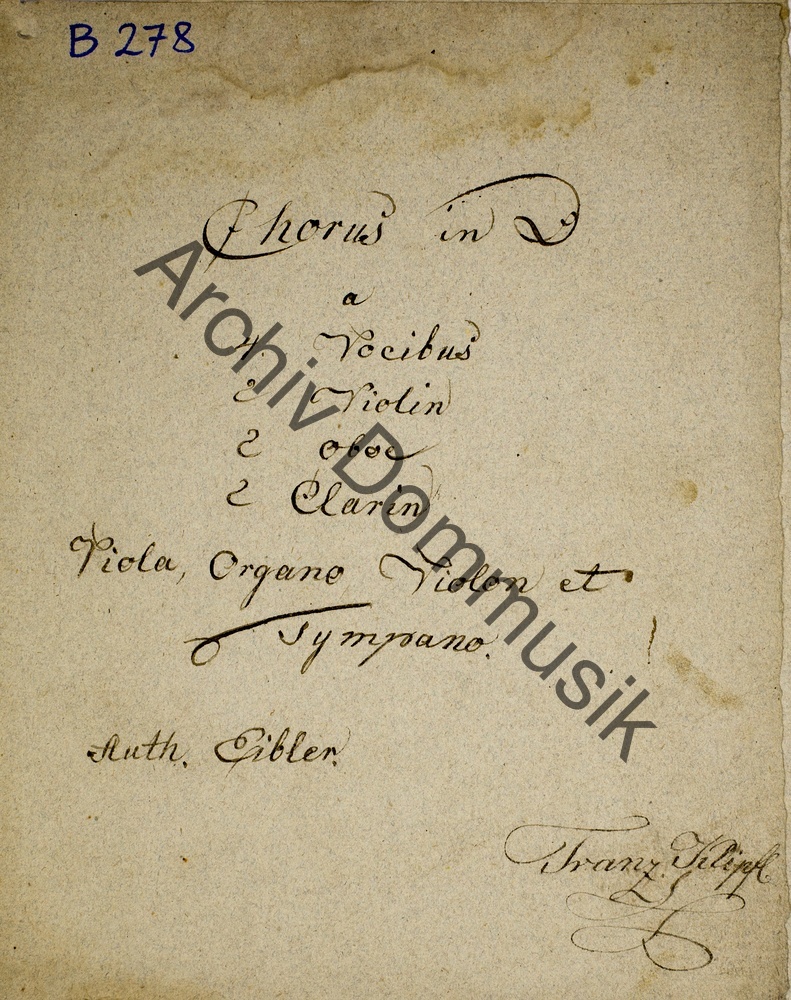 B 278
Chorus in D
a
4 Vocibus
2 Violin
2 Oboe
2 Clarin
Viola, Organo Violon et
Tympano.
Auth. Eibler.
Franz
Archiv Dommusik